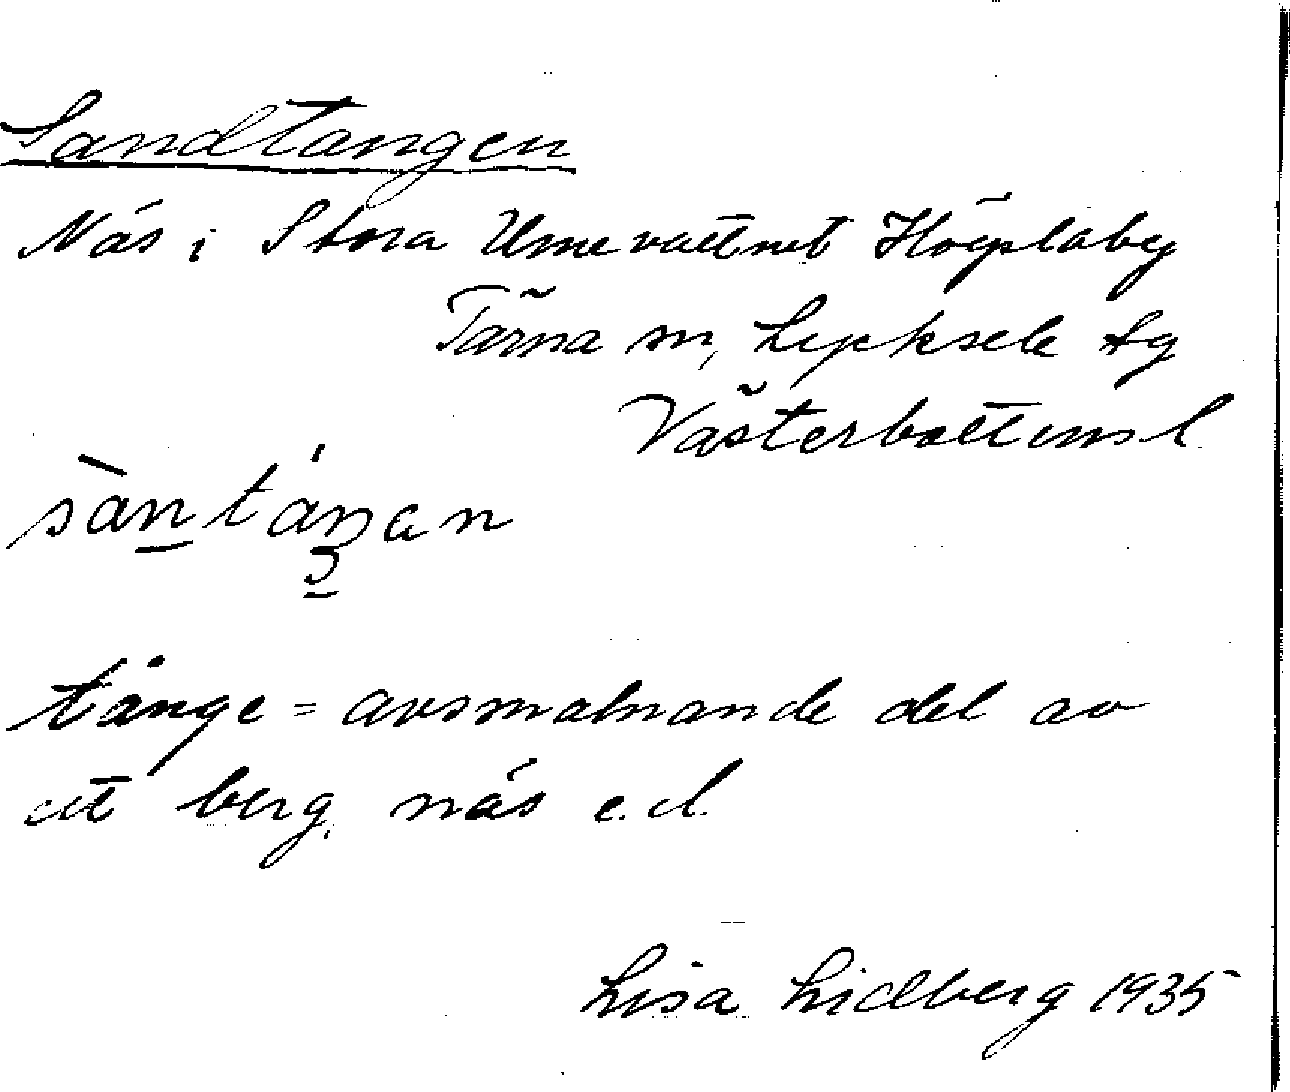 Sandtangen
Näs i Stora Umevattnet Högstaby
Tärna sn, Lycksele lg
Västerbottens l.
sàn̲táŋan
tånge = avsmalnande del av
ett berg, näs e. d.
Lisa Lidberg 1935